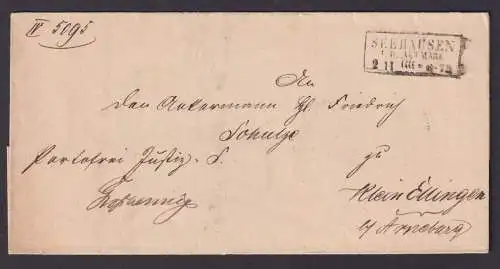 IV 5095
SEEHAUSEN
I. D. ALTMARK
2 11 66 * 6-7N
An
den Ackermann H. Friedrich
Schulze
Portofrei Justiz-S.
zu
Klein Ellingen
b/ Arneburg